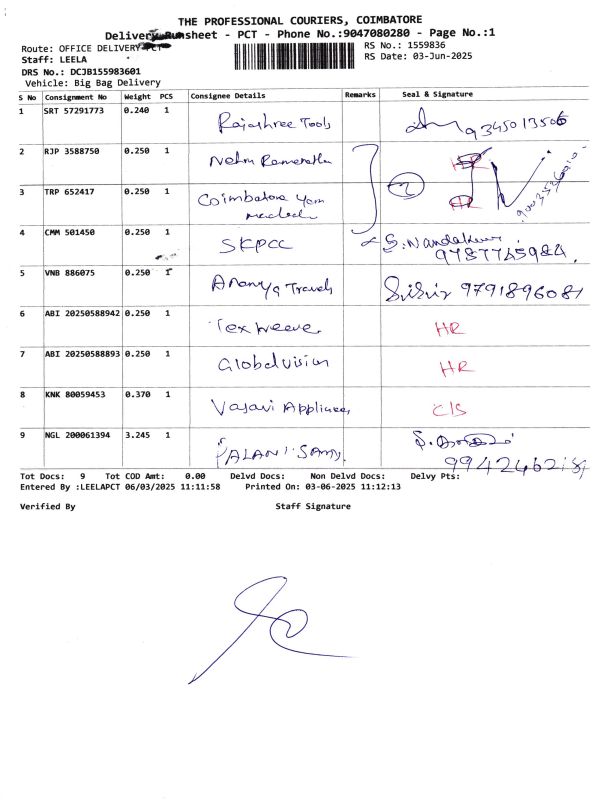 THE PROFESSIONAL COURIERS, COIMBATORE
Delivery Runsheet - PCT - Phone No.:9047080280 - Page No.:1
Route: OFFICE DELIVERY PCT
RS No.: 1559836
Staff: LEELA
RS Date: 03-Jun-2025
DRS No.: DCJB155983601
Vehicle: Big Bag Delivery
S No Consignment No Weight PCS Consignee Details Remarks Seal & Signature
1 SRT 57291773 0.240 1 Rajashree Tools 9345013506
2 RJP 3588750 0.250 1 Nehru HR
3 TRP 652417 0.250 1 Coimbatore 2 HR
4 CMM 501450 0.250 1 SKPCC S. Nandakumar
9787745984
5 VNB 886075 0.250 1 Ananya Travels 9791896081
6 ABI 20250588942 0.250 1 Tex weeve HR
7 ABI 20250588893 0.250 1 Global vision HR
8 KNK 80059453 0.370 1 Vasavi Appliances C/S
9 NGL 200061394 3.245 1 PALANI SAMY
Tot Docs: 9 Tot COD Amt: 0.00 Delvd Docs: Non Delvd Docs: Delvy Pts:
Entered By :LEELAPCT 06/03/2025 11:11:58 Printed On: 03-06-2025 11:12:13
Verified By Staff Signature